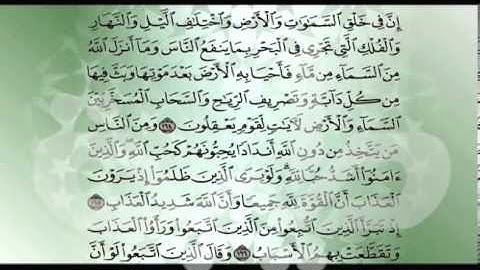 إِنَّ فِي خَلْقِ السَّمَٰوَٰتِ وَالْأَرْضِ وَاخْتِلَٰفِ الَّيْلِ وَالنَّهَارِ
وَالْفُلْكِ الَّتِي تَجْرِي فِي الْبَحْرِ بِمَا يَنفَعُ النَّاسَ وَمَا أَنزَلَ اللَّهُ
مِنَ السَّمَاءِ مِن مَّاءٍ فَأَحْيَا بِهِ الْأَرْضَ بَعْدَ مَوْتِهَا وَبَثَّ فِيهَا
مِن كُلِّ دَابَّةٍ وَتَصْرِيفِ الرِّيَٰحِ وَالسَّحَابِ الْمُسَخَّرِ بَيْنَ
السَّمَاءِ وَالْأَرْضِ لَءَايَٰتٍ لِّقَوْمٍ يَعْقِلُونَ ١٦٤ وَمِنَ النَّاسِ
مَن يَتَّخِذُ مِن دُونِ اللَّهِ أَندَادًا يُحِبُّونَهُمْ كَحُبِّ اللَّهِ وَالَّذِينَ
ءَامَنُوا أَشَدُّ حُبًّا لِّلَّهِ وَلَوْ يَرَى الَّذِينَ ظَلَمُوا إِذْ يَرَوْنَ
الْعَذَابَ أَنَّ الْقُوَّةَ لِلَّهِ جَمِيعًا وَأَنَّ اللَّهَ شَدِيدُ الْعَذَابِ ١٦٥
إِذْ تَبَرَّأَ الَّذِينَ اتُّبِعُوا مِنَ الَّذِينَ اتَّبَعُوا وَرَأَوُا الْعَذَابَ
وَتَقَطَّعَتْ بِهِمُ الْأَسْبَابُ ١٦٦ وَقَالَ الَّذِينَ اتَّبَعُوا لَوْ أَنَّ